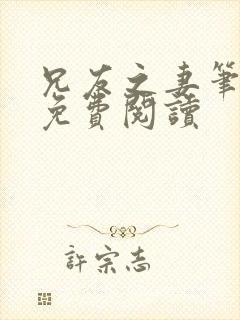 兄友之妻筆
免費閱讀
許宗志